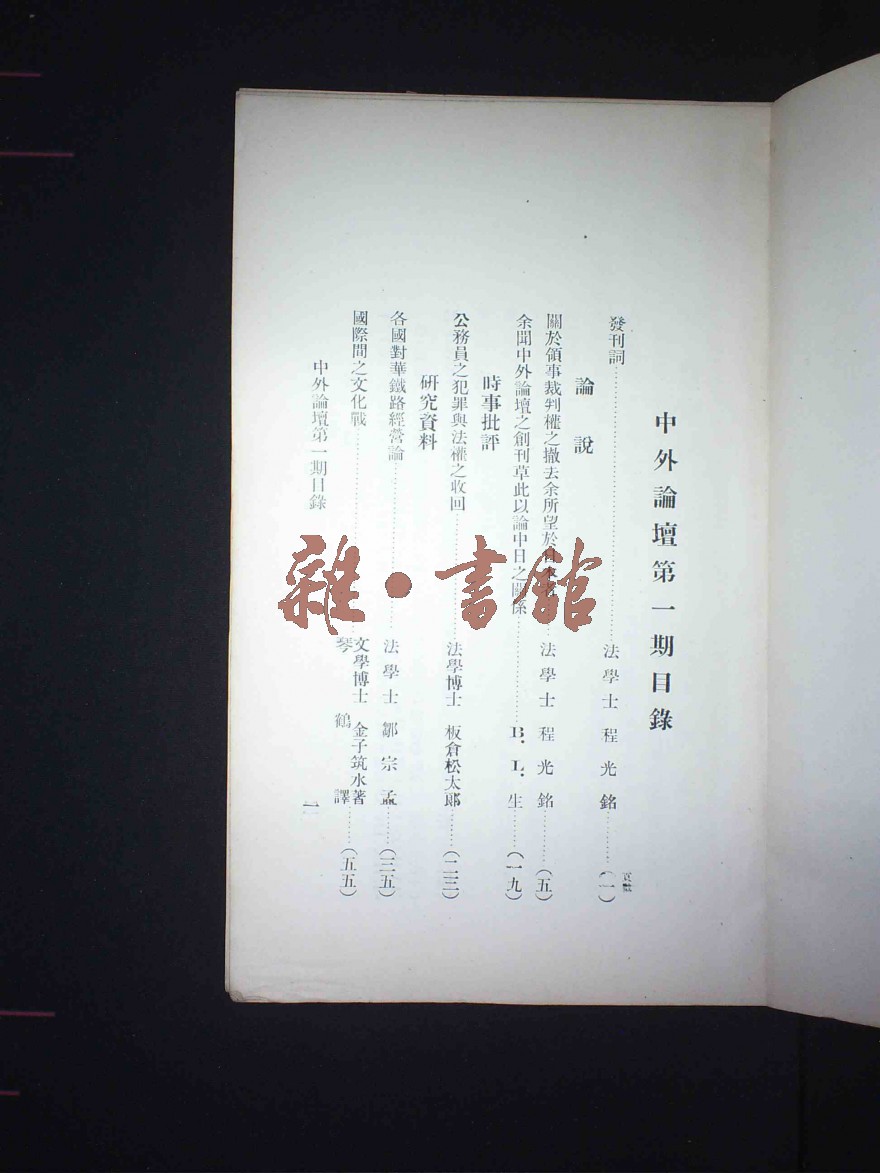 中外論壇第一期目錄
頁數
發刊詞……法學士 程光銘……(一)
論說
關於領事裁判權之撤去余所望於……法學士 程光銘……(五)
余聞中外論壇之創刊草此以論中日之關係……B. L. 生……(一九)
時事批評
公務員之犯罪與法權之收回……法學博士 板倉松太郎……(二三)
研究資料
各國對華鐵路經營論……法學士 鄒宗孟……(三五)
國際間之文化戰……文學博士 金子筑水著
琴鶴譯……(五五)
中外論壇第一期目錄
一
雜·書館